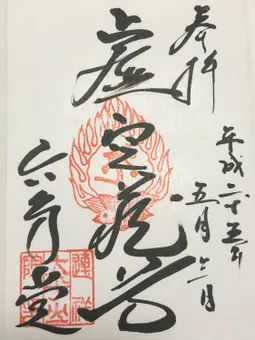 奉拝
平成二十五年
五月 日
虚空蔵尊
六角堂